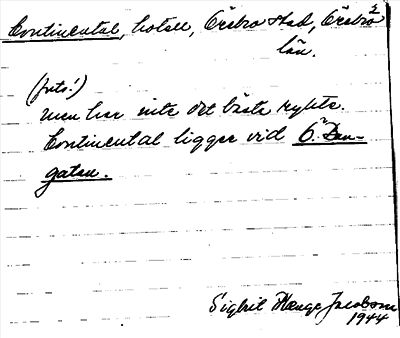 Continental, hotell, Örebro stad, Örebro 2
län.
(forts.)
men har inte det bästa rykte.
Continental ligger vid
gatan.
Sigbrit Plænge Jacobson
1944